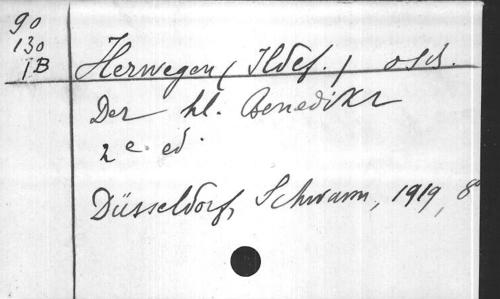 90
130
IB
Herwegen (Ildef.) osb.
Der hl. Benedikt
2e ed.
Düsseldorf, Schwann, 1919, 8°